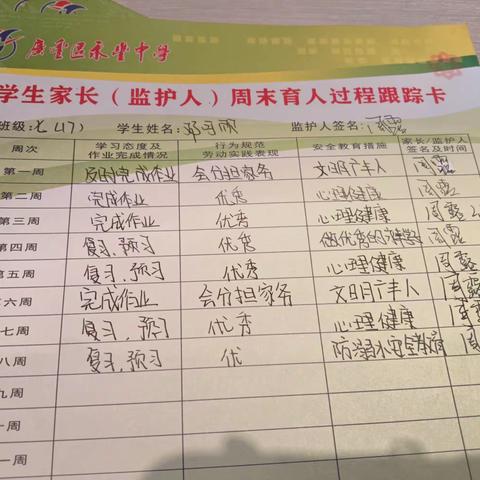 广丰区永丰中学
学生家长（监护人）周末育人过程跟踪卡
班级:七(17) 学生姓名: 监护人签名:周露
周次 学习态度及作业完成情况 行为规范劳动实践表现 安全教育措施 家长/监护人签名及时间
第一周 及时完成作业 会分担家务 文明广丰人 周露
第二周 完成作业 优秀 心理健康 周露
第三周 完成作业 优秀 心理健康 周露
第四周 复习、预习 优秀 做优秀的 周露
第五周 复习、预习 优秀 心理健康 周露
第六周 完成作业 会分担家务 文明广丰人 周露
七周 复习、预习 优秀 心理健康 周露
八周 复习、预习 优 防溺水安全教育 周
九周
一周